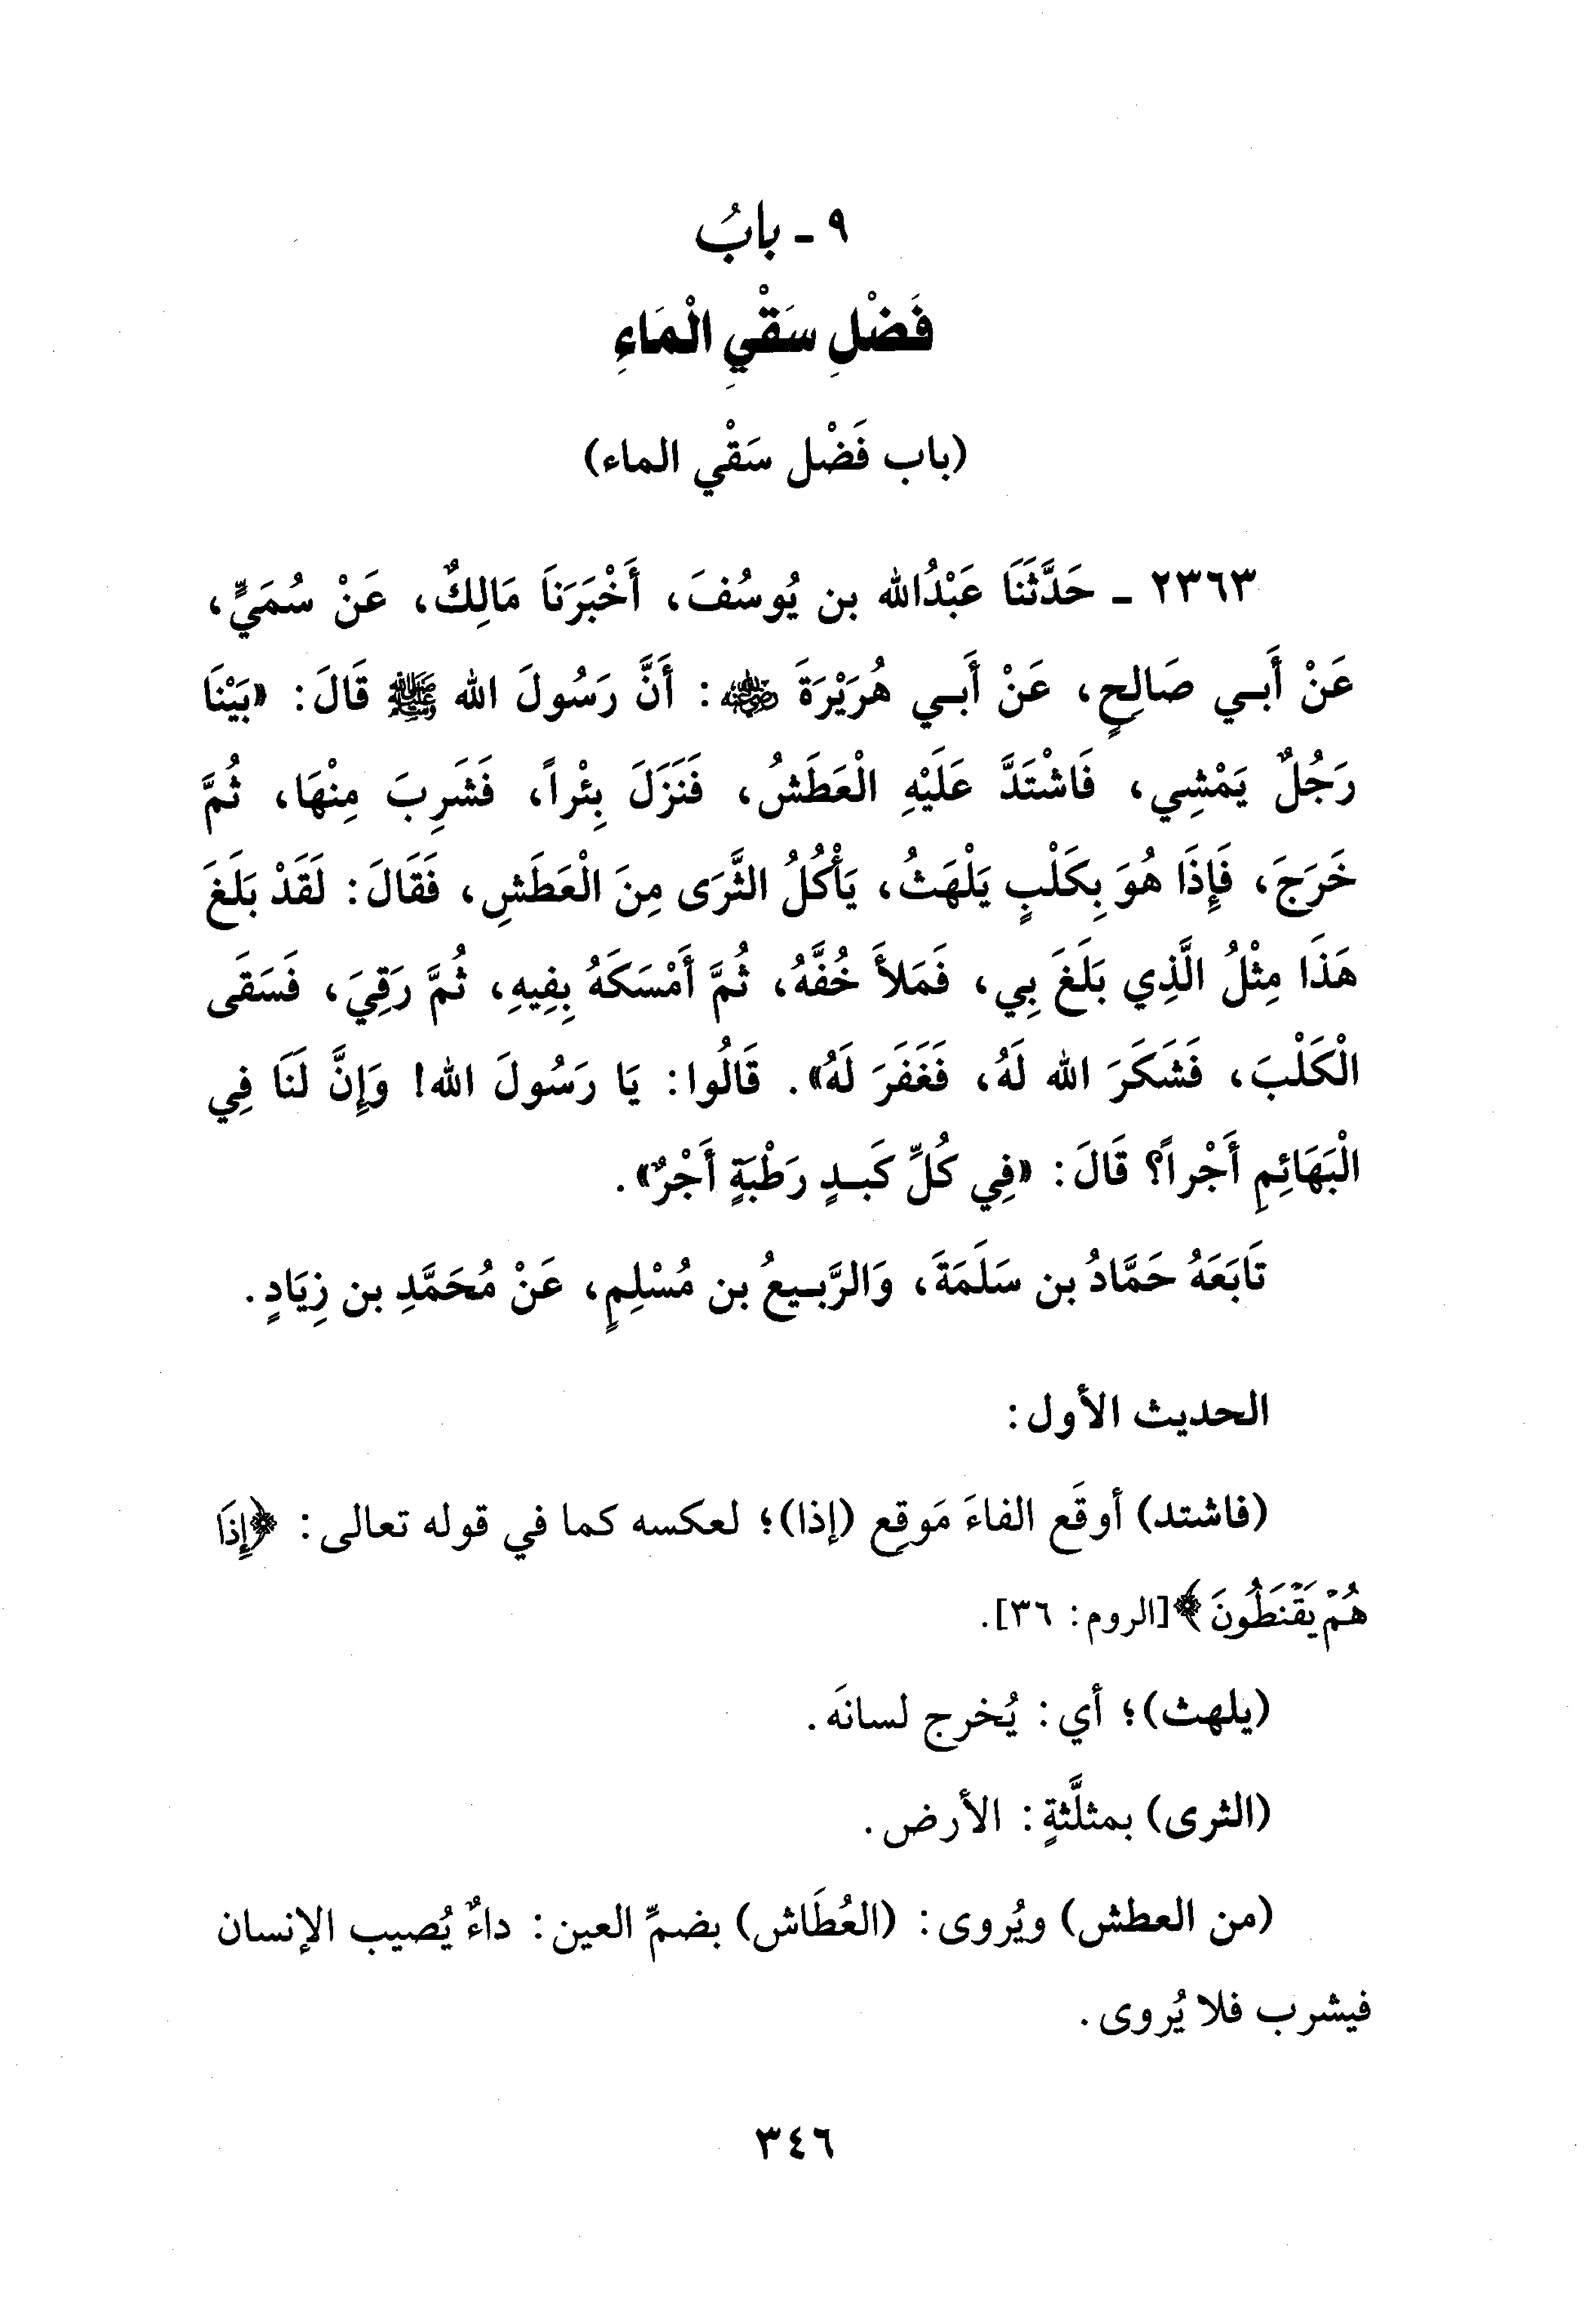 ٩ - بابُ
فَضْلِ سَقْيِ الْمَاءِ
(باب فَضْل سَقْي الماء)
٢٣٦٣ - حَدَّثَنَا عَبْدُالله بن يُوسُفَ، أَخْبَرَنَا مَالِكٌ، عَنْ سُمَيٍّ،
عَنْ أَبِي صَالِحٍ، عَنْ أَبِي هُرَيْرَةَ ﵁: أَنَّ رَسُولَ الله ﷺ قَالَ: «بَيْنَا
رَجُلٌ يَمْشِي، فَاشْتَدَّ عَلَيْهِ الْعَطَشُ، فَنَزَلَ بِئْراً، فَشَرِبَ مِنْهَا، ثُمَّ
خَرَجَ، فَإِذَا هُوَ بِكَلْبٍ يَلْهَثُ، يَأْكُلُ الثَّرَى مِنَ الْعَطَشِ، فَقَالَ: لَقَدْ بَلَغَ
هَذَا مِثْلُ الَّذِي بَلَغَ بِي، فَمَلأَ خُفَّهُ، ثُمَّ أَمْسَكَهُ بِفِيهِ، ثُمَّ رَقِيَ، فَسَقَى
الْكَلْبَ، فَشَكَرَ الله لَهُ، فَغَفَرَ لَهُ». قَالُوا: يَا رَسُولَ الله! وَإِنَّ لَنَا فِي
الْبَهَائِمِ أَجْراً؟ قَالَ: «فِي كُلِّ كَبِدٍ رَطْبَةٍ أَجْرٌ».
تَابَعَهُ حَمَّادُ بن سَلَمَةَ، وَالرَّبِيعُ بن مُسْلِمٍ، عَنْ مُحَمَّدِ بن زِيَادٍ.
الحديث الأول:
(فاشتد) أوقَع الفاءَ مَوقِع (إذا)؛ لعكسه كما في قوله تعالى: ﴿إِذَا
هُمْ يَقْنَطُونَ﴾ [الروم: ٣٦].
(يلهث)؛ أي: يُخرج لسانَه.
(الثرى) بمثلَّثةٍ: الأرض.
(من العطش) ويُروى: (العُطَاش) بضمِّ العين: داءٌ يُصيب الإنسان
فيشرب فلا يُروى.
٣٤٦